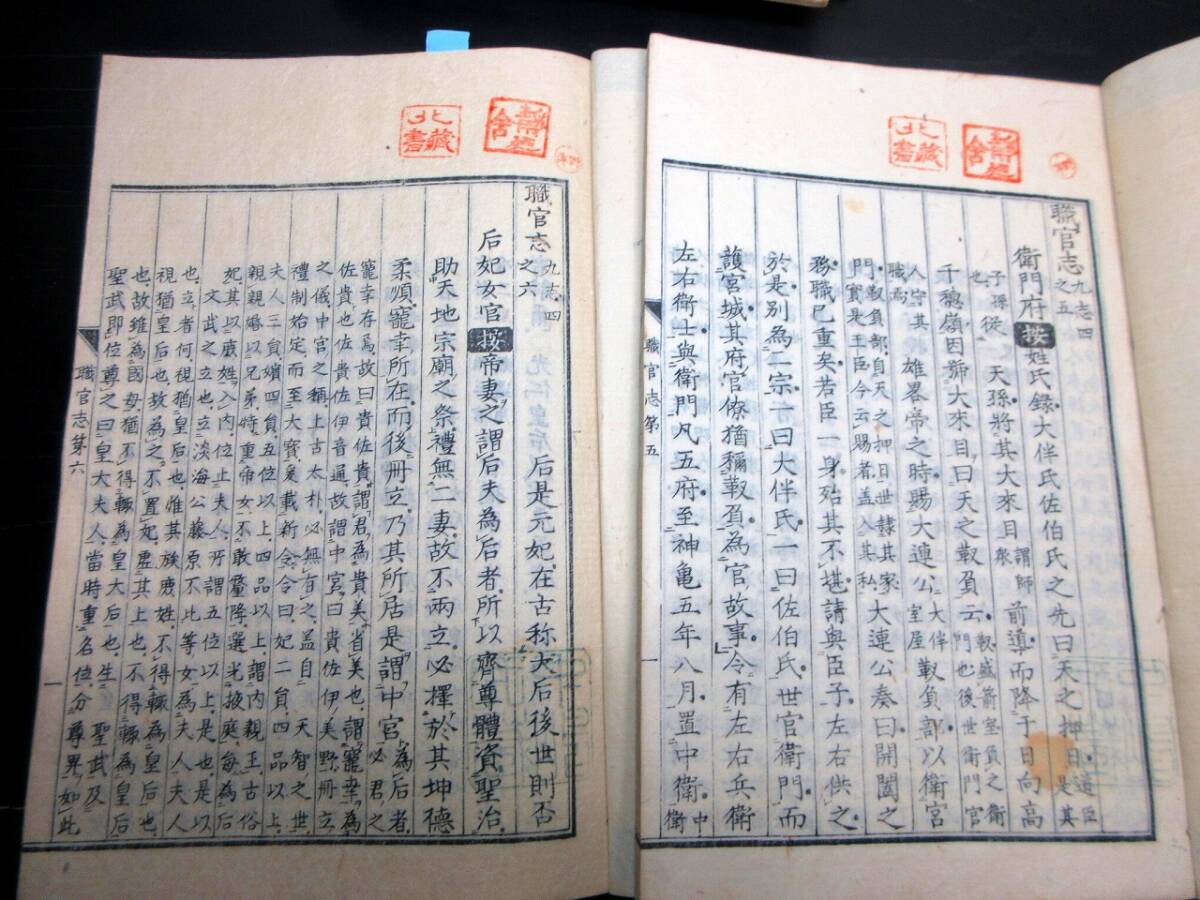 北藏書
職官志 九志四之五
衛門府 按 姓氏錄。大伴氏佐伯氏之先曰天之押日。道臣是其
也。子孫從 天孫將其大來目 謂師衆 前導而降于日向高
千穗嶺因號大來目。曰天之靫負云 靫盛箭室負之衛門也後世衛門官
人守其職焉 雄畧帝之時。賜大連公 大伴室屋 靫負部。以衛宮
門。靫負部自天之押日世隷其家門實是王臣今云賜者蓋入其私 大連公奏曰開闔之
務職已重矣。若臣一身殆其不堪請與臣子左右供之
於是別為二宗。一曰大伴氏。一曰佐伯氏世官衛門而
護宮城其府官僚猶稱靫負為官故事。今有左右兵衛
左右衛士與衛門凡五府。至神亀五年八月置中衛。中衛
職官志第五
一
北藏書
職官志 九志四之六
后妃女官 按 帝妻之謂后夫為后者所以齊尊體資聖治
后是元妃。在古称大后後世則否
助天地宗廟之祭禮無二妻故不兩立必擇於其坤德
柔順寵幸所在而後冊立乃其所居是謂中宮 為后者必君之
寵幸存焉故曰貴佐貴謂君為貴美省美也謂寵幸為
佐貴也佐貴佐伊音通故謂中宮曰貴佐伊美野冊立
之儀中宮之稱上古太朴必無有之蓋自 天智之世
禮制始定而至大寶爰載新令令曰妃二負四品以上
夫人三負嬪四負五位以上四品以上謂内親王古俗
親親婚以兄弟時重帝女不敢釐降選光掖庭每為后
妃其以庶姓入内位止夫人所謂五位以上是也是以
文武之立也立淡海公藤原不比等女為夫人夫人
也立者何視猶皇后也惟其族庶姓不得輒為皇后也
視猶皇后也故為之不置妃虛其上也不得輒為皇后
也故雖為國母猶不得輒為皇大后也生 聖武及
聖武即位尊之曰皇大夫人當時重名位分尋異如此
職官志第六
一